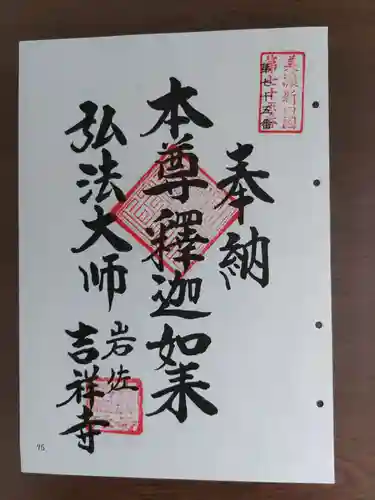 美濃新四国
第七十五番
奉納
本尊釋迦如来
弘法大師
岩佐
吉祥寺
75